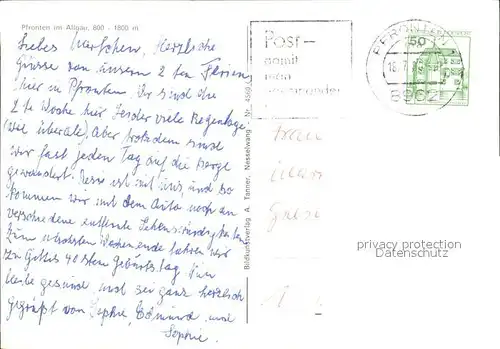 Pfronten im Allgäu, 800 - 1800 m
Liebes Herzliche
Grüsse von unsern 2 ten Ferien
hier in Pfronten. Wir sind die
2 te Woche hier leider viele Regentage
(wie überall). Aber trotzdem sind
wir fast jeden Tag auf die Berge
gewandert. ist mit uns, und so
kommen wir mit dem Auto noch an
verschiedene entfernte Sehenswürdigkeiten.
Zum nächsten Wochenende fahren wir
zu 40 stem Geburtstag. Nun
bleibe gesund und sei ganz herzlich
gegrüßt von Sophie, Edmund und
Sophie.
Bildkunstverlag A. Tanner, Nesselwang - Nr. 4569
Post -
damit
man
PFRONTEN
18.7.
8962
50
Frau
privacy protection
Datenschutz